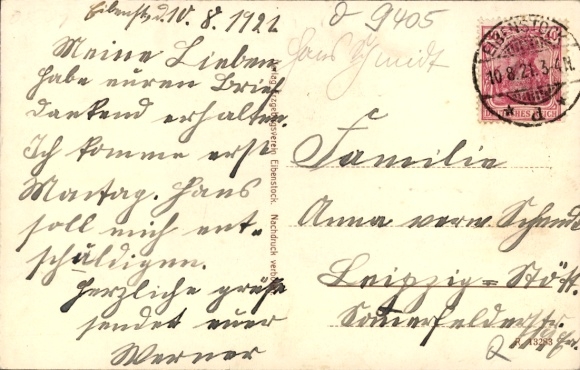 Eibenstock, d. 10. 8. 1921
Meine Lieben
habe euren Brief
dankend erhalten.
Ich komme erst
Montag. Hans
soll mich ent-
schäldigen.
Herzliche grüße
sendet euer
Werner
Verlag Erzgebirgsverein Eibenstock. Nachdruck verboten
d 9405
Hans Schmidt
EIBENSTOCK
10.8.21. 3-4N.
* d *
DEUTSCHES REICH
Familie
Anna verw.
Leipzig=Stött.
Sommerfelderstr.
R. 13283